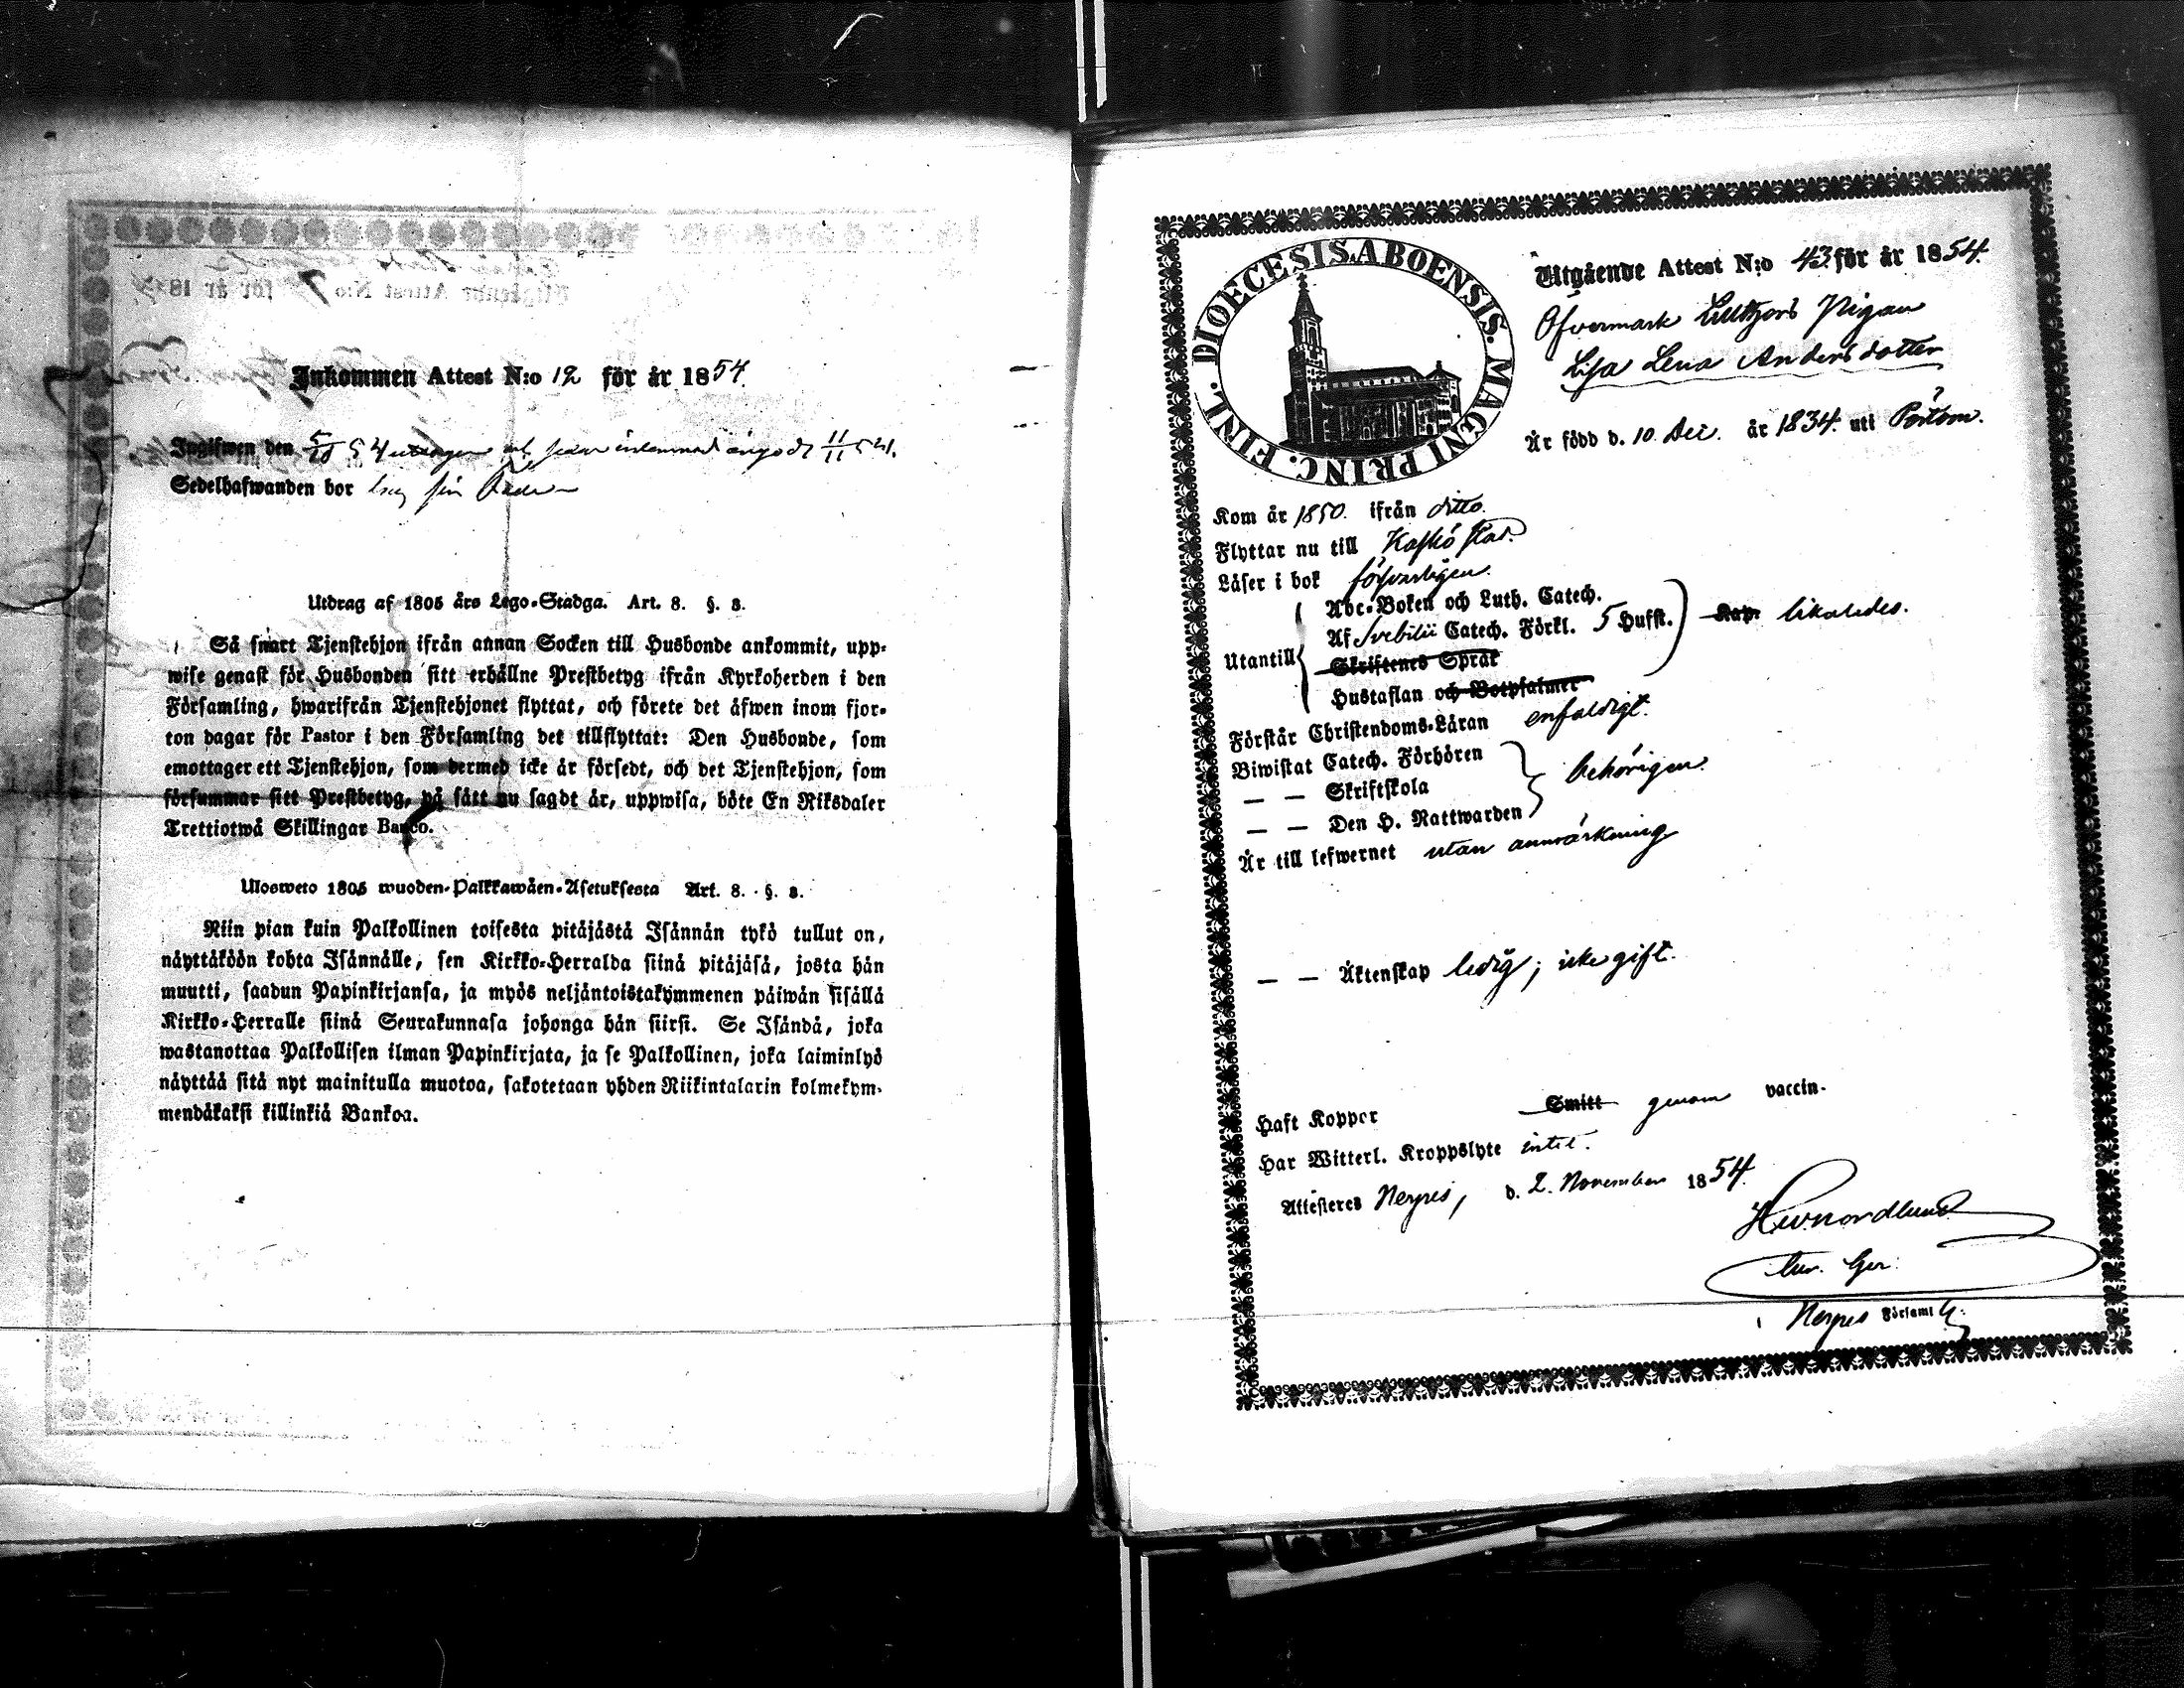 Inkommen Attest N:o 12 för år 1854.
Ingifwen den 5/10 54 och 11/11 54.
Sedelhafwanden bor hos sin
Utdrag af 1805 års Lego-Stadga. Art. 8. §. 3.
Så snart Tjenstehjon ifrån annan Socken till Husbonde ankommit, upp-
wise genast för Husbonden sitt erhållne Prestbetyg ifrån Kyrkoherden i den
Församling, hwarifrån Tjenstehjonet flyttat, och förete det äfwen inom fjor-
ton dagar för Pastor i den Församling det tillflyttat: Den Husbonde, som
emottager ett Tjenstehjon, som dermed icke är försedt, och det Tjenstehjon, som
försummar sitt Prestbetyg, på sätt nu sagdt är, uppwisa, böte En Riksdaler
Trettiotwå Skillingar Banco.
Ulosweto 1805 wuoden-Palkkawäen-Asetuksesta Art. 8. §. 3.
Niin pian kuin Palkollinen toisesta pitäjästä Isännän tykö tullut on,
näyttäköön kohta Isännälle, sen Kirkko-Herralda siinä pitäjäsä, josta hän
muutti, saadun Papinkirjansa, ja myös neljäntoistakymmenen päiwän sisällä
Kirkko-Herralle siinä Seurakunnasa johonga hän siirsi. Se Isändä, joka
wastanottaa Palkollisen ilman Papinkirjata, ja se Palkollinen, joka laiminlyö
näyttää sitä nyt mainitulla muotoa, sakotetaan yhden Riikintalarin kolmekym-
mendäkaksi killinkiä Bankoa.
DIOECESIS ABOENSIS. MAGNI PRINC. FINL.
Utgående Attest N:o 43 för år 1854.
Öfvermark Pigan
Lisa Lena Andersdotter
Är född d. 10 Dec. år 1834. uti Pörtom.
Kom år 1850. ifrån ditto.
Flyttar nu till Kaskö stad.
Läser i bok försvarligen.
Abc-Boken och Luth. Catech.
Af Svebilii Catech. Förkl. 5 Hufst. Kap. likaledes.
Utantill
Skriftenes Språk
Hustaflan och Botpsalmer
Förstår Christendoms-Läran enfaldigt.
Biwistat Catech. Förhören
— — Skriftskola behörigen.
— — Den H. Nattwarden
Är till lefwernet utan anmärkning
— — Äktenskap ledig; icke gift.
Haft Koppor Smitt genom vaccin.
Har Witterl. Kroppslyte intet.
Attesteres Nerpes, d. 2. November 1854.
Nordlund
Nerpes Församl